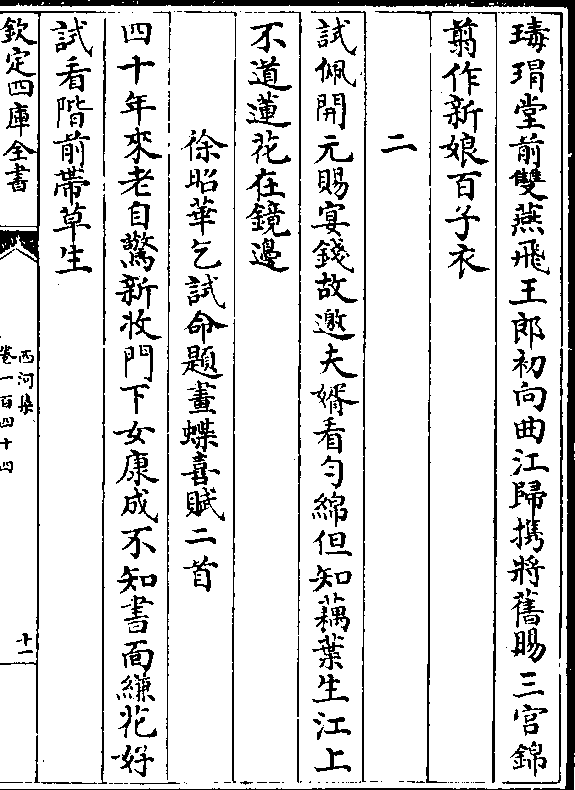 瑇瑁堂前雙燕飛王郎初向曲江歸携將舊賜三宫錦
翦作新娘百子衣
二
試佩開元賜宴錢故邀夫婿看勻綿但知藕葉生江上
不道蓮花在鏡邊
徐昭華乞試命題畫蝶喜賦二首
四十年來老自驚新妝門下女康成不知書面縑花好
試看階前帶草生
欽定四庫全書
西河集
卷一百四十四
十一